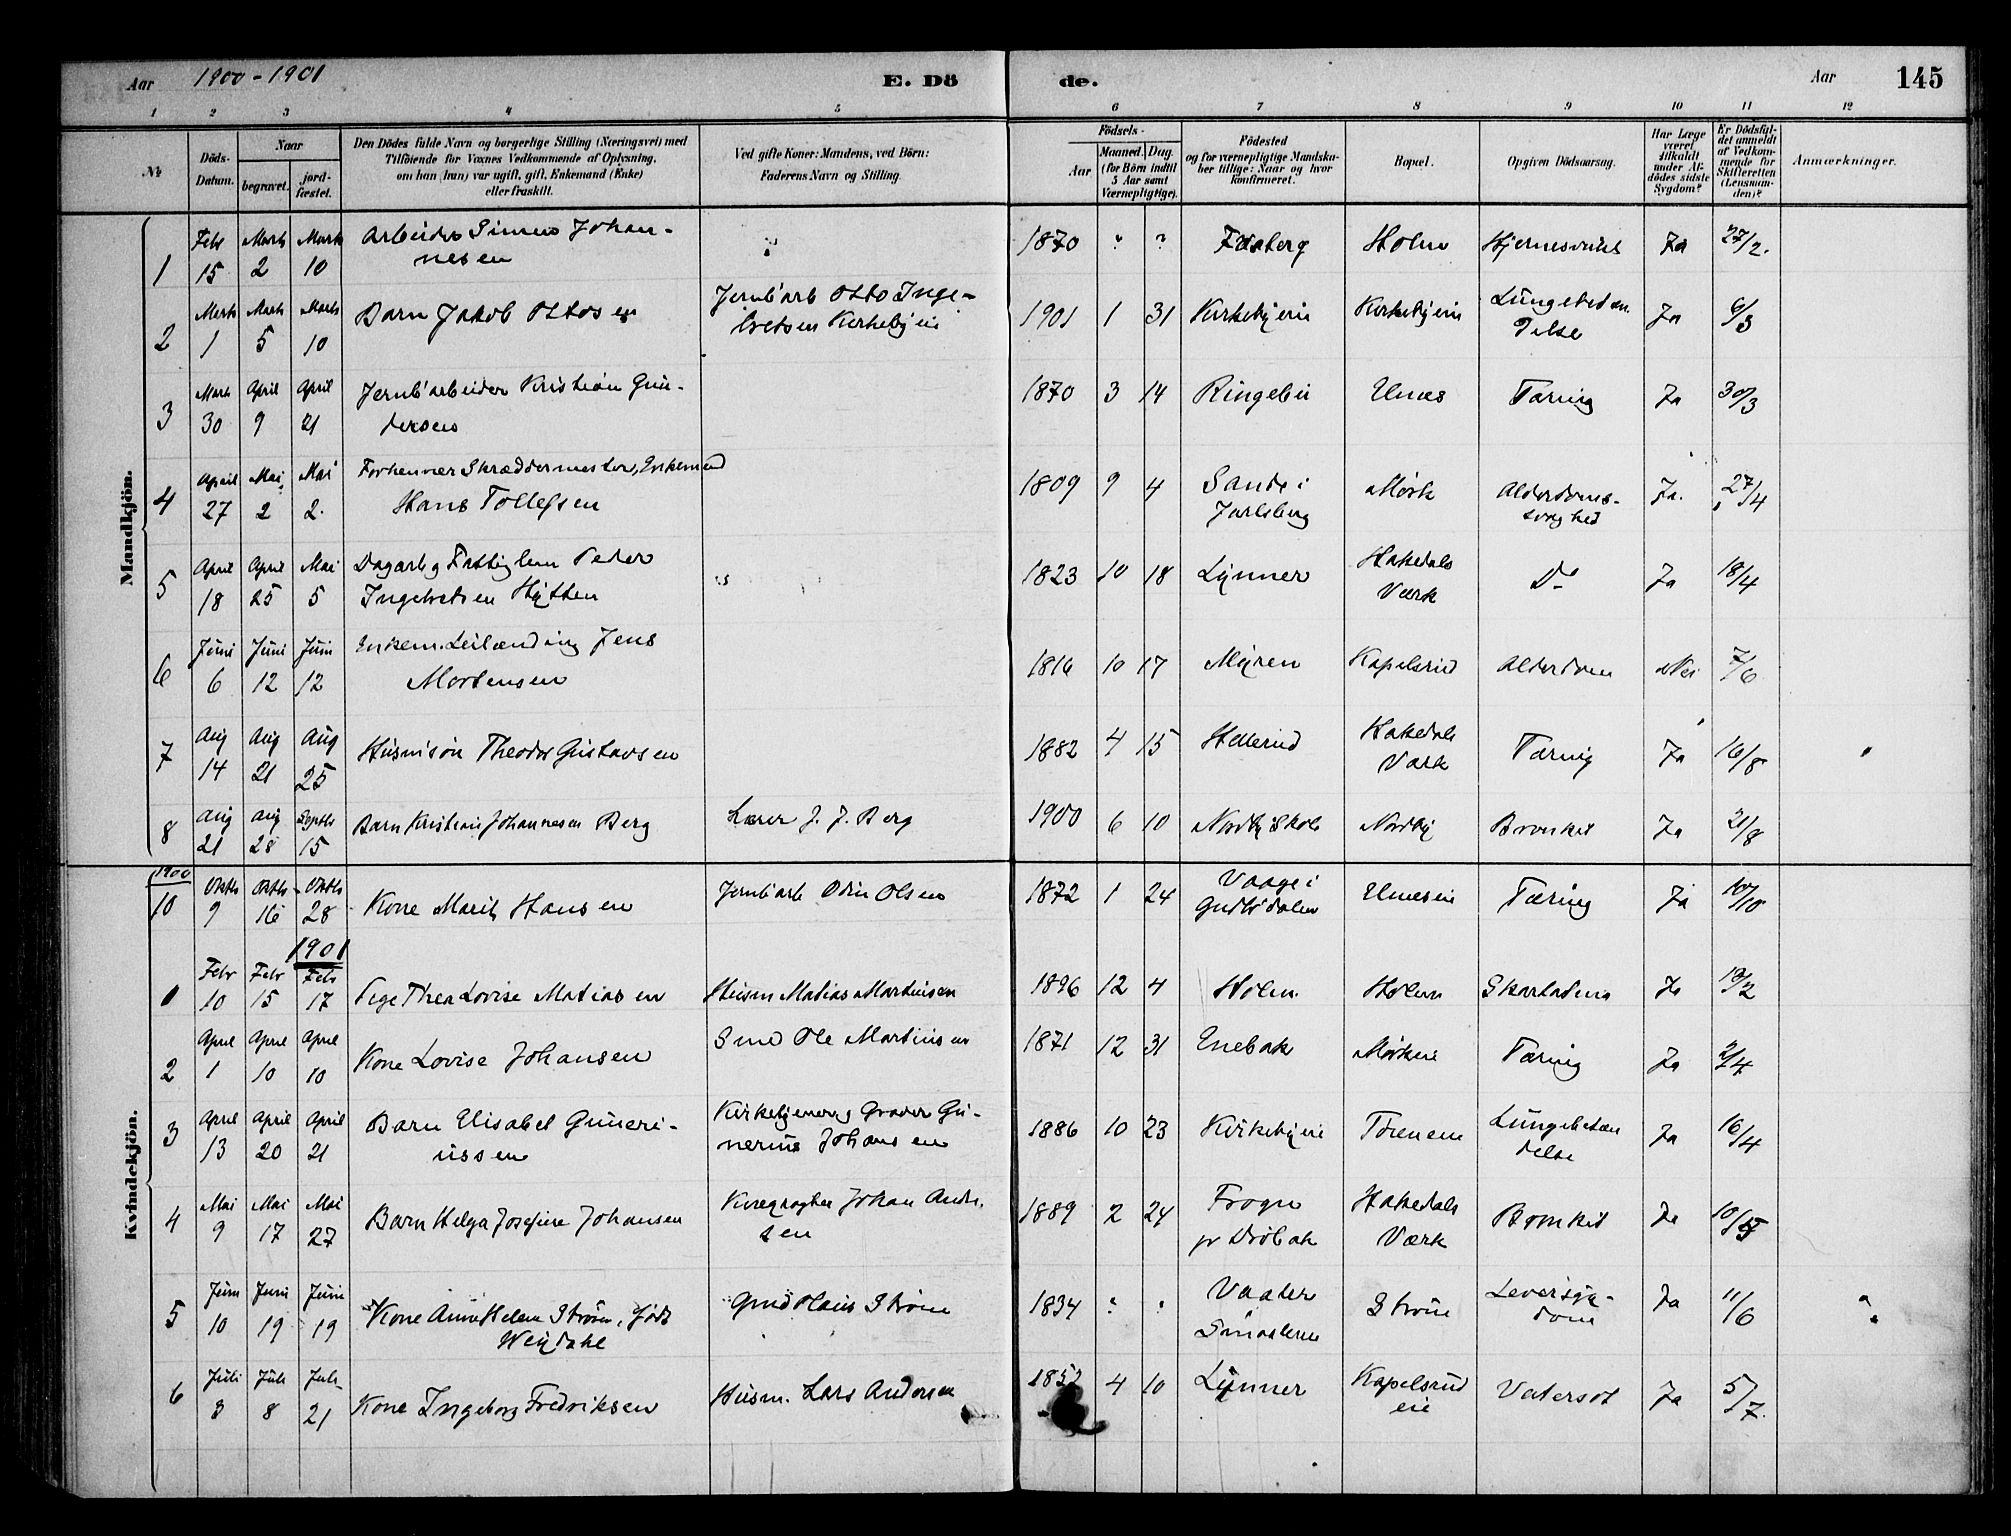 Aar 1900-1901 E. Dö de. Aar 145
1 2 3 4 5 6 7 8 9 10 11 12
№
Döds-
Datum.
Naar
begravet.
jord-
fæstet.
Den Dödes fulde Navn og borgerlige Stilling (Næringsvei) med
Tilföiende for Voxnes Vedkommende af Oplysning,
om han (hun) var ugift, gift, Enkemand (Enke)
eller fraskilt.
Ved gifte Koner: Mandens, ved Börn:
Faderens Navn og Stilling.
Födsels-
Aar
Maaned. Dag.
(for Börn indtil
5 Aar samt
Værnepligtige).
Födested
og for værnepligtige Mandska-
ber tillige: Naar og hvor
konfirmeret.
Bopæl.
Opgiven Dödsaarsag.
Har Læge
været
tilkaldt
under Af-
dödes sidste
Sygdom?
Er Dödsfal-
det anmeldt
af Vedkom-
mende for
Skifteretten
(Lensman-
den)?
Anmærkninger.
Mandkjön.
Febr Marts Marts Arbeider Simen Johan-
1 15 2 10 nesen 1870 ? ? Holm Ja 27/2.
Marts Marts Marts Barn Jakob Ottosen Jernb'arb Otto Inge-
2 1 5 10 bretsen Kirkebyeie 1901 1 31 Kirkebyeie Kirkebyeie Lungebetæn-
delse Ja 6/3
Marts April April Jernb'arbeider Kristian Gun-
3 30 9 21 dersen 1870 3 14 Ringebu Unæs Tæring Ja 30/3
April Mai Mai Forhenvær Skræddermester, Enkemand
4 27 2 2. Hans Tollefsen 1809 9 4 Sande i
Jarlsberg Mørk Alderdoms-
svaghed Ja. 27/4
April April Mai Dagarb og Fattiglem Peder
5 18 25 5 Ingebretsen Hytten 1823 10 18 Lynner Hakedals
Værk Do Ja 18/4
Juni Juni Juni Enkem. Leilænding Jens
6 6 12 12 Mortensen 1816 10 17 Myren Kapelsrud Alderdom Nei 7/6
Aug Aug Aug
7 14 21 25 Husm'søn Theodor Gustavsen 1882 4 15 Hellerud Hakedals
Værk Tæring Ja 16/8
Aug Aug Septbr
8 21 28 15 Barn Kristian Johannesen Berg Lærer J. J. Berg 1900 6 10 Nordby Skole Nordby Bronkit Ja 21/8
Kvindekjön.
1900
Oktbr Oktbr Oktbr
10 9 16 28 Kone Marit Hansen Jernb'arb Odin Olsen 1872 1 24 Vaage i
Gudb'dalen Unæseie Tæring Ja 10/10
1901
Febr Febr Febr
1 10 15 17 Pige Thea Lovise Matiasen Husm Matias Martinsen 1896 12 4 Holm. Holm Ja
April April April
2 1 10 10 Kone Lovise Johansen Smed Ole Martinsen 1871 12 31 Enebak Mørkeie Tæring Ja 2/4
April April April Barn Elisabet Guneri-
3 13 20 21 ussen Kirketjener og Graver Gu-
nerius Johansen 1886 10 23 Kirkebyeie Lungebetæn
delse Ja 16/4
Mai Mai Mai
4 9 17 27 Barn Helga Josefine Johansen Johan Andr.
sen 1889 2 24 Frogn
pr Drøbak Hakedals
Værk Bronkit Ja 10/5
Juni Juni Juni
5 10 19 19 Kone Anne Helene Strøm, født
Weydahl Hans Strøm 1834 ? ? Vaaler
Smaalenene Strøm Leversyg-
dom Ja 11/6
Juli Juli Juli
6 3 8 21 Kone Ingeborg Fredriksen Husm. Lars Andersen 4 10 Lynner Kapelsrud
eie Vatersot Ja 5/7.